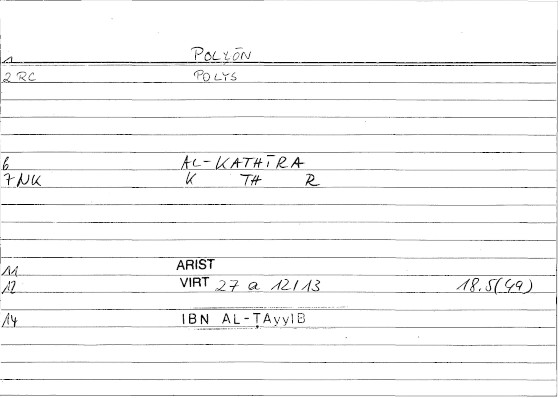 1 POLLŌN
2 RC POLYS
6 AL-KATHĪRA
7 NK K TH R
11 ARIST
12 VIRT 27 a 12/13 18.5(49)
14 IBN AL-ṬAyyIB